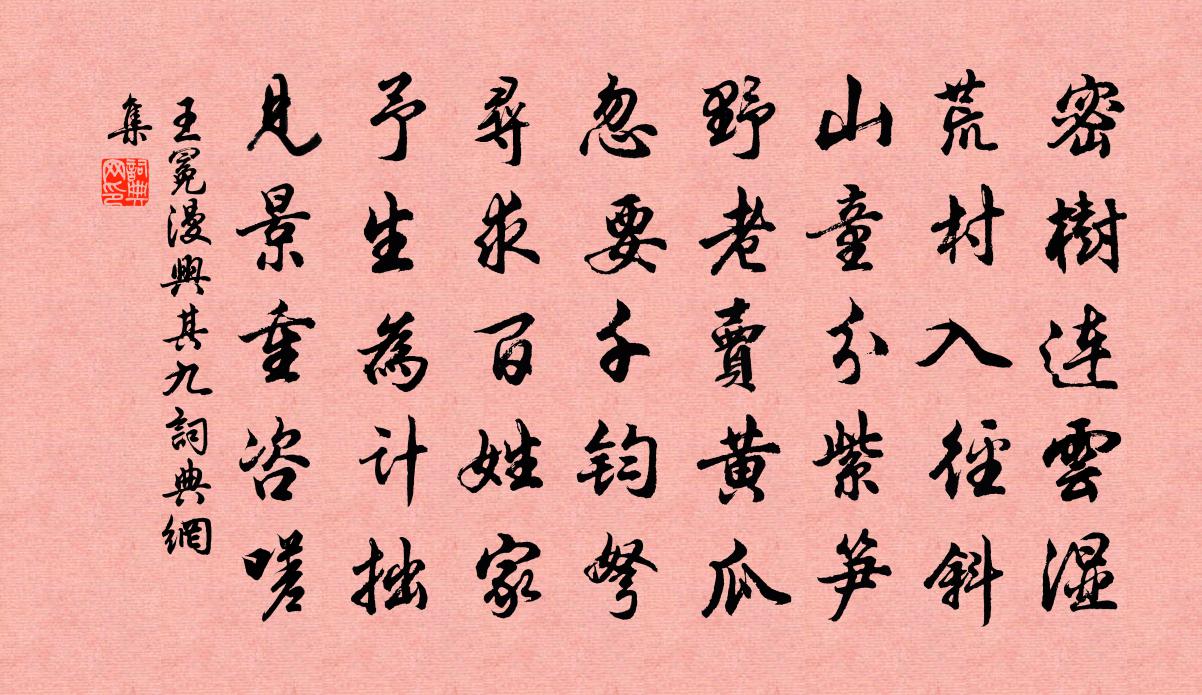 密樹連雲濕
荒村入徑斜
山童分紫笋
野老賣黃瓜
忽要千鈞弩
尋求百姓家
予生為計拙
見景重咨嗟
王冕漫興其九詞典網
集
詞典
網印